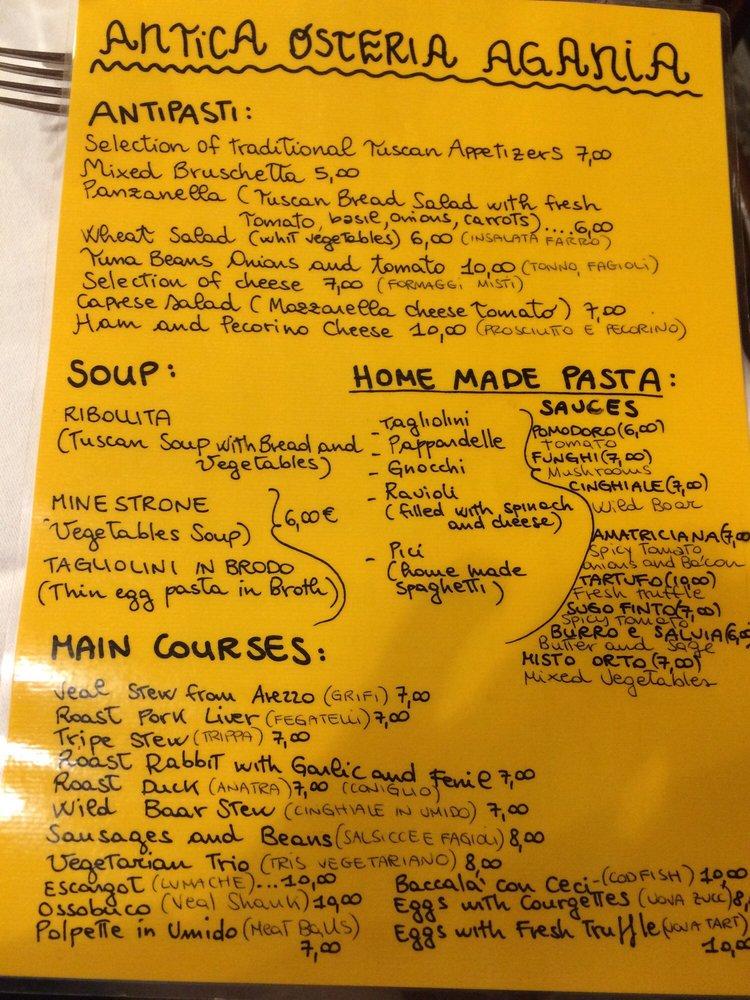 ANTICA OSTERIA AGANIA
ANTIPASTI:
Selection of traditional Tuscan Appetizers 7,00
Mixed Bruschetta 5,00
Panzanella (Tuscan Bread Salad with fresh
Tomato, basil, onions, carrots)....6,00
Wheat Salad (whit vegetables) 6,00 (INSALATA FARRO)
Tuna Beans Onions and tomato 10,00 (TONNO, FAGIOLI)
Selection of cheese 7,00 (FORMAGGI MISTI)
Caprese Salad (Mozzarella cheese Tomato) 7,00
Ham and Pecorino Cheese 10,00 (PROSCIUTTO E PECORINO)
SOUP:
RIBOLLITA
(Tuscan Soup with Bread and
Vegetables)
MINESTRONE
Vegetables Soup)
6,00€
TAGLIOLINI IN BRODO
(Thin egg pasta in Broth)
HOME MADE PASTA:
- Tagliolini
- Pappardelle
- Gnocchi
- Ravioli
(filled with spinach
and cheese)
- Pici
(home made
spaghetti)
SAUCES
POMODORO (6,00)
Tomato
FUNGHI (7,00)
Mushrooms
CINGHIALE (7,00)
Wild Boar
AMATRICIANA (7,00
Spicy Tomato
onions and Bacon
TARTUFO (10,00)
Fresh truffle
SUGO FINTO (7,00)
Spicy Tomato
BURRO E SALVIA (6,00
Butter and Sage
MISTO ORTO (7,00)
Mixed Vegetables
MAIN COURSES:
Veal Stew from Arezzo (GRIFI) 7,00
Roast Pork Liver (FEGATELLI) 7,00
Tripe Stew (TRIPPA) 7,00
Roast Rabbit with Garlic and Fenil 7,00
Roast Duck (ANATRA) 7,00 (CONIGLIO)
Wild Boar Stew (CINGHIALE IN UMIDO) 7,00
Sausages and Beans (SALSICCE E FAGIOLI) 8,00
Vegetarian Trio (TRIS VEGETARIANO) 8,00
Escargot (LUMACHE)...10,00
Ossobuco (Veal Shank) 10,00
Polpette in Umido (Meat Balls)
7,00
Baccalà con Ceci-(CODFISH) 10,00
Eggs with Courgettes (UOVA ZUCC) 8,
Eggs with Fresh Truffle (UOVA TART)
10,00